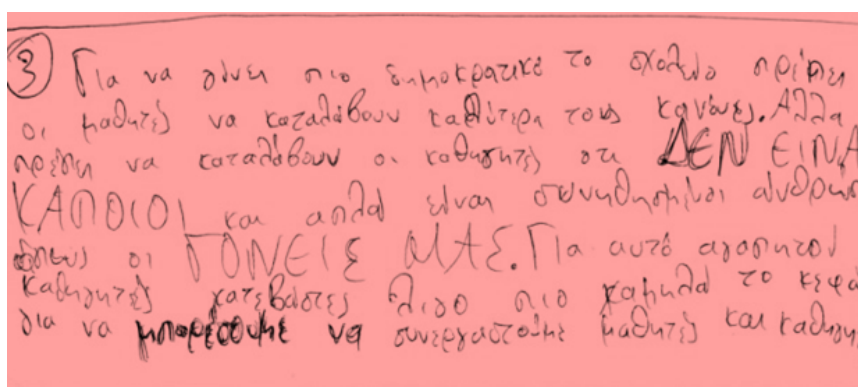 ③ Για να γίνει πιο δημοκρατικό το σχολείο πρέπει
οι μαθητές να καταλάβουν καλύτερα τους κανόνες. Αλλα
πρέπει να καταλάβουν οι καθηγητές οτι ΔΕΝ ΕΙΝΑ
ΚΑΠΟΙΟΙ και απλά είναι συνηθησμένοι άνθρωπ
όπως οι ΓΟΝΕΙΣ ΜΑΣ. Για αυτό αγαπητοί
καθηγητές κατεβάστες λιγο πιο χαμηλά το κεφά
για να μπορέσουμε να συνεργαστούμε μαθητές και καθηγη